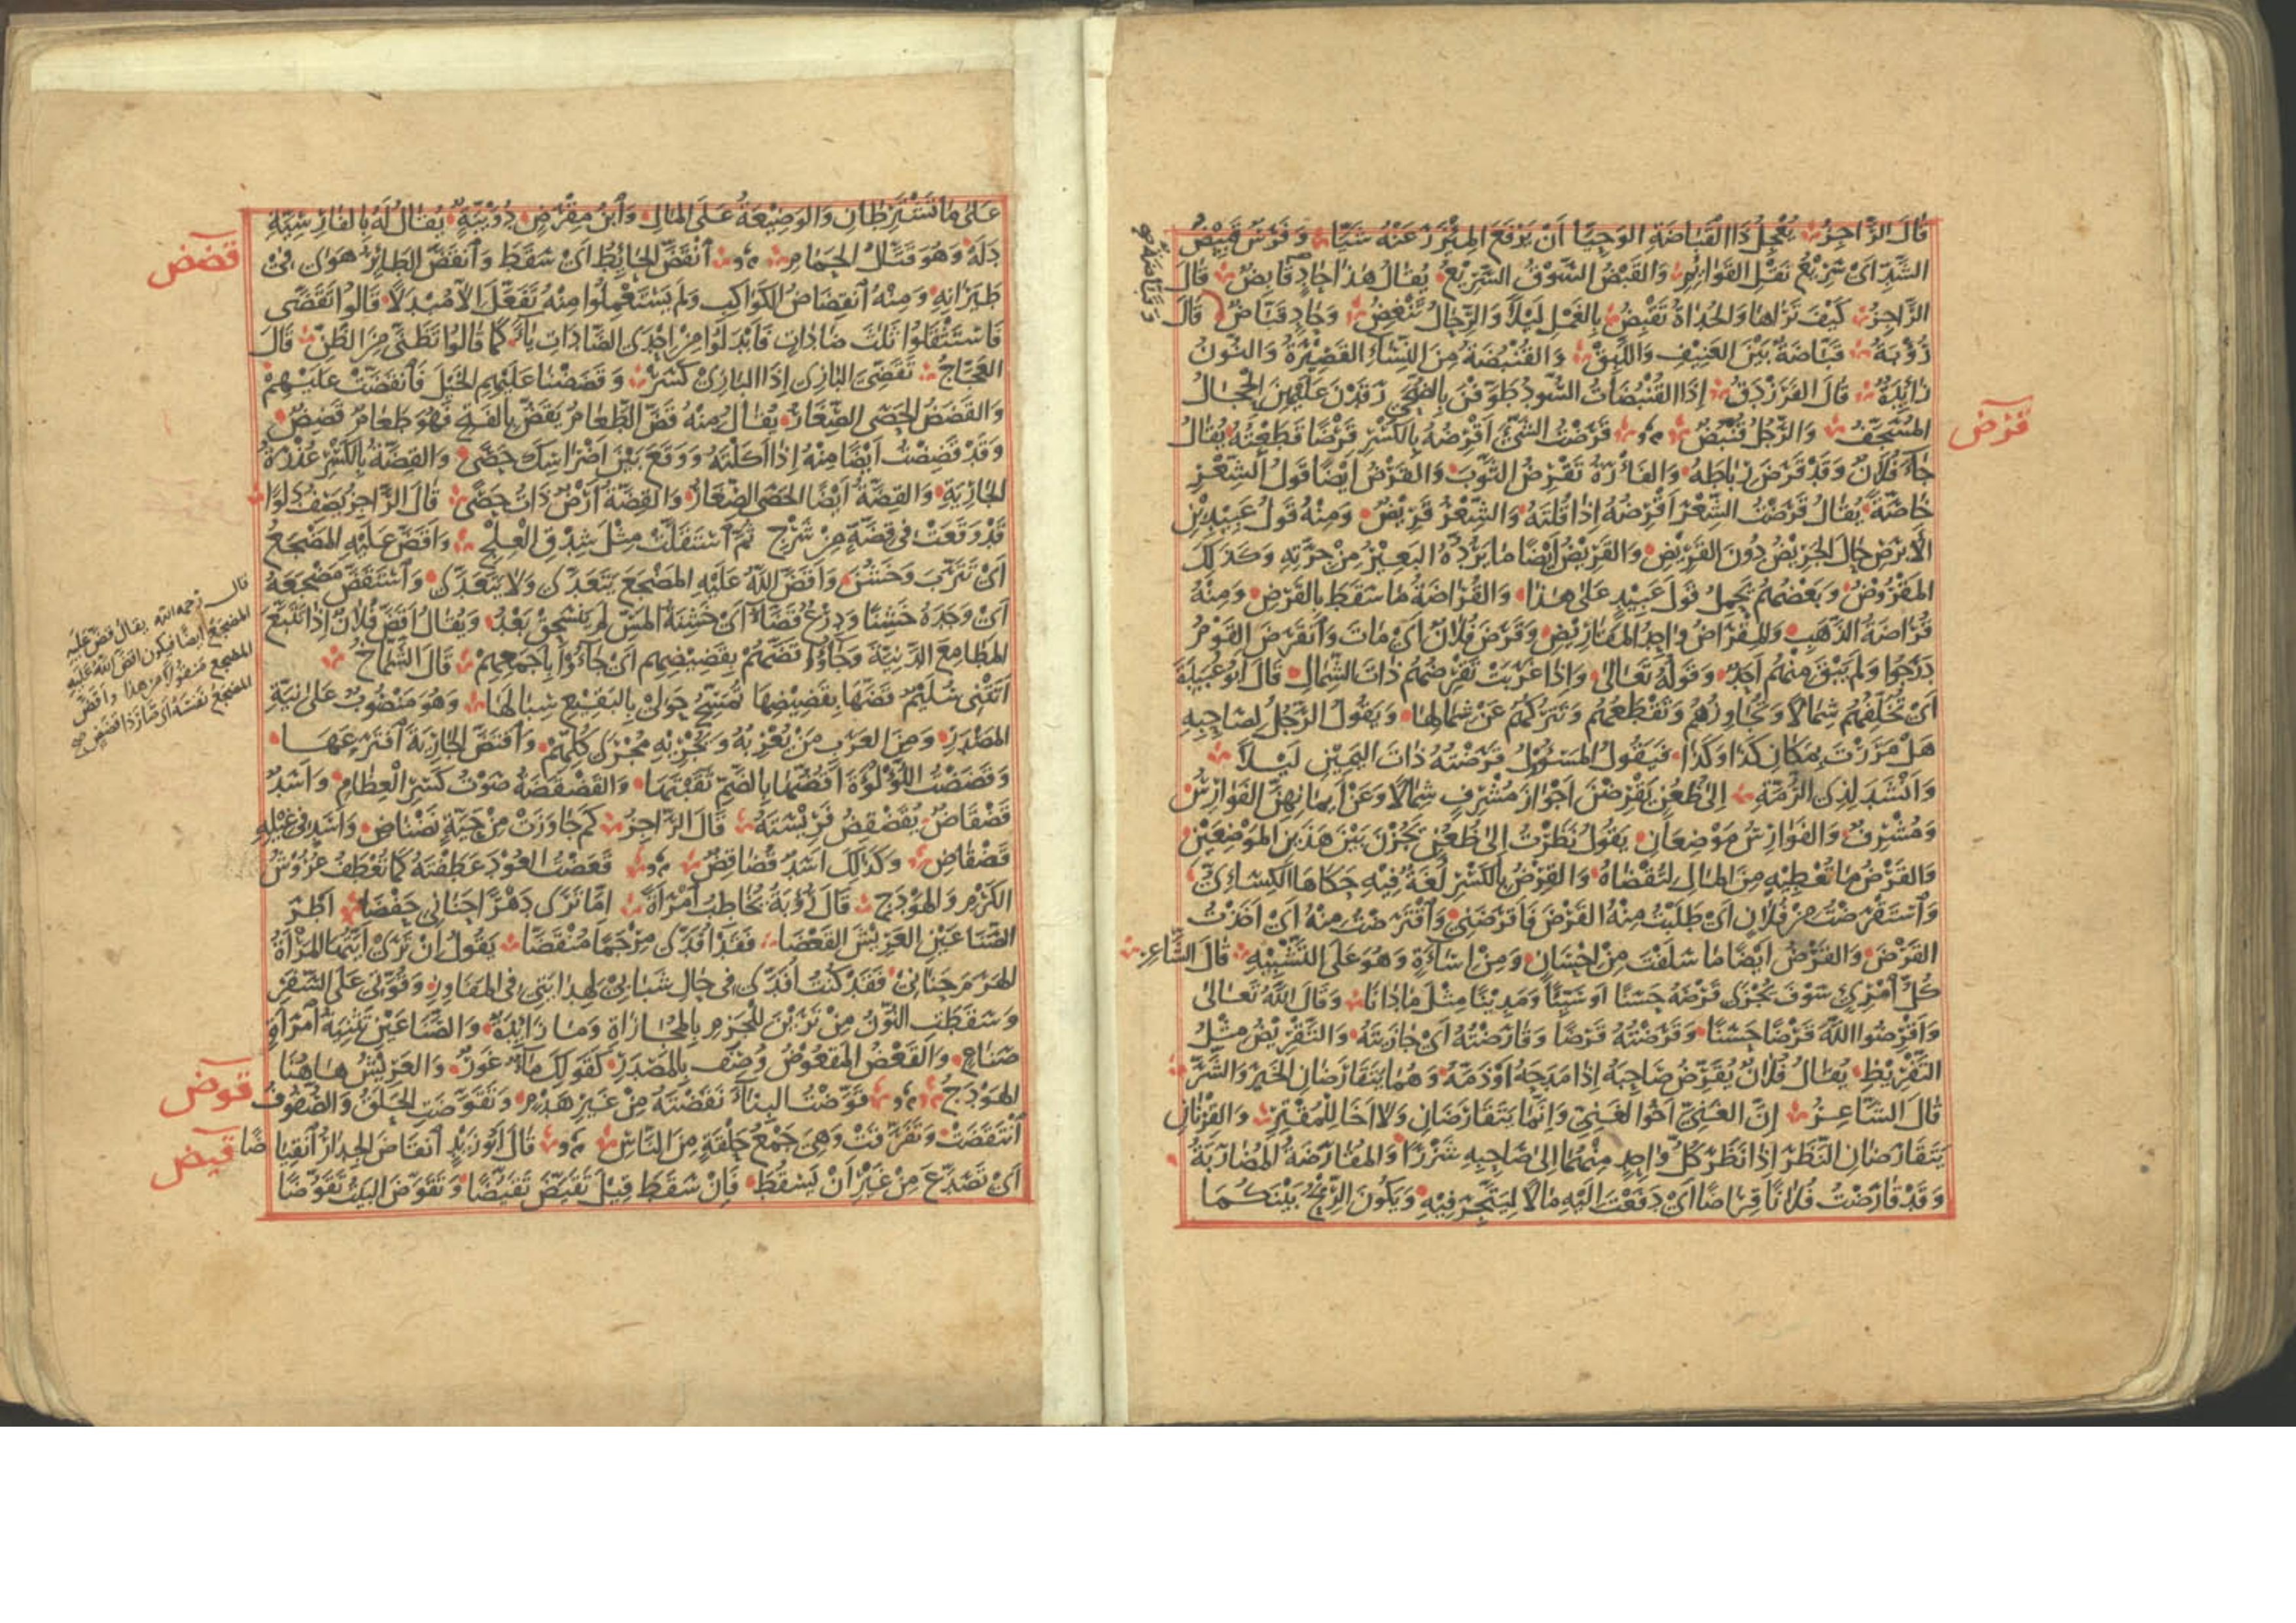 قَالَ الرَّاجِزُ يُعْجِلُ ذَا القَبَاضَةِ الوَحِيَّا أَنْ يَرْفَعَ المِئْزَرَ عَنْهُ شَيَّا وَفَرَسٌ قَبِيضُ
الشَّدِّ اَىْ سَرِيْعُ نَقْلِ القَوَائِمِ وَالقَبْضُ السَّوْقُ السَّرِيْعُ يُقَالُ هٰذَا حَادٍ قَابِضٌ قَالَ
الرَّاجِزُ كَيْفَ تَرَاهَا وَالحُدَاةُ تَقْبِضُ بِالغَمْلِ لَيْلًا وَالرِّحَالُ تَنْغِضُ وَحَادٍ قَبَّاضٌ قَالَ
رُؤْبَةُ قَبَّاضَةٌ بَيْنَ العَنِيْفِ وَاللَّبِقْ وَالقُنْبُضَةُ مِنَ النِّسَاءِ القَصِيْرَةُ وَالنُّونُ
زَائِدَةٌ قَالَ الفَرَزْدَقُ اِذَا القُنْبُضَاتُ السُّودُ طَوَّفْنَ بِالضُّحَى رَقَدْنَ عَلَيْهِنَّ الحِجَالُ
المُسَجَّفُ وَالرَّجُلُ قُنْبُضٌ قَرَضْتُ الشَّىْءَ اَقْرِضُهُ بِالكَسْرِ قَرْضًا قَطَعْتُهُ يُقَالُ
قرض
جَاءَ فُلَانٌ وَقَدْ قَرَضَ رِبَاطَهُ وَالفَأْرَةُ تَقْرِضُ الثَّوْبَ وَالقَرْضُ اَيْضًا قَوْلُ الشِّعْرِ
خَاصَّةً يُقَالُ قَرَضْتُ الشِّعْرَ اَقْرِضُهُ اِذَا قُلْتَهُ وَالشِّعْرُ قَرِيْضٌ وَمِنْهُ قَوْلُ عَبِيْدِ بْنِ
الاَبْرَصِ حَالَ الجَرِيْضُ دُونَ القَرِيْضِ وَالقَرِيْضُ اَيْضًا مَا يَرُدُّهُ البَعِيْرُ مِنْ جِرَّتِهِ وَكَذٰلِكَ
المَقْرُوْضُ وَبَعْضُهُمْ يَحْمِلُ قَوْلَ عَبِيْدٍ عَلَى هٰذَا وَالقُرَاضَةُ مَا سَقَطَ بِالقَرْضِ وَمِنْهُ
قُرَاضَةُ الذَّهَبِ وَالمِقْرَاضُ وَاحِدُ المَقَارِيْضِ وَقَرَضَ فُلَانٌ اَىْ مَاتَ وَانْقَرَضَ القَوْمُ
دَرَجُوا وَلَمْ يَبْقَ مِنْهُمْ اَحَدٌ وَقَوْلُهُ تَعَالَى وَاِذَا غَرَبَتْ تَقْرِضُهُمْ ذَاتَ الشِّمَالِ قَالَ اَبُو عُبَيْدَةَ
اَىْ تُخَلِّفُهُمْ شِمَالًا وَتُجَاوِزُهُمْ وَتَقْطَعُهُمْ وَتَتْرُكُهُمْ عَنْ شِمَالِهَا وَيَقُولُ الرَّجُلُ لِصَاحِبِهِ
هَلْ مَرَرْتَ بِمَكَانِ كَذَا وَكَذَا فَيَقُولُ المَسْئُولُ قَرَضْتُهُ ذَاتَ اليَمِيْنِ لَيْلًا
وَاَنْشَدَ لِذِى الرُّمَّةِ اِلَى ظُعُنٍ يَقْرِضْنَ اَجْوَازَ مُشْرِفٍ شِمَالًا وَعَنْ اَيْمَانِهِنَّ الفَوَارِسُ
وَمُشْرِفٌ وَالفَوَارِسُ مَوْضِعَانِ يَقُولُ نَظَرْتُ اِلَى ظُعُنٍ يَجُزْنَ بَيْنَ هٰذَيْنِ المَوْضِعَيْنِ
وَالقَرْضُ مَا تُعْطِيْهِ مِنَ المَالِ لِتُقْضَاهُ وَالقِرْضُ بِالكَسْرِ لُغَةٌ فِيْهِ حَكَاهَا الكِسَائِىُّ
وَاسْتَقْرَضْتُ مِنْ فُلَانٍ اَىْ طَلَبْتُ مِنْهُ القَرْضَ فَاَقْرَضَنِى وَاقْتَرَضْتُ مِنْهُ اَىْ اَخَذْتُ
القَرْضَ وَالقَرْضُ اَيْضًا مَا سَلَّفْتَ مِنْ اِحْسَانٍ وَمِنْ اِسَاءَةٍ وَهُوَ عَلَى التَّشْبِيْهِ قَالَ الشَّاعِرُ
كُلُّ امْرِئٍ سَوْفَ يُجْزَى قَرْضَهُ حَسَنًا اَوْ سَيِّئًا وَمَدِيْنًا مِثْلَ مَا دَانَا وَقَالَ اللّٰهُ تَعَالَى
وَاَقْرِضُوا اللّٰهَ قَرْضًا حَسَنًا وَقَرَضْتُهُ قَرْضًا وَقَارَضْتُهُ اَىْ جَازَيْتُهُ وَالتَّقْرِيْضُ مِثْلُ
التَّقْرِيْظِ يُقَالُ فُلَانٌ يُقَرِّضُ صَاحِبَهُ اِذَا مَدَحَهُ اَوْ ذَمَّهُ وَهُمَا يَتَقَارَضَانِ الخَيْرَ وَالشَّرَّ
قَالَ الشَّاعِرُ اِنَّ الغَنِىَّ اَخُو الغَنِىِّ وَاِنَّمَا يَتَقَارَضَانِ وَلَا اَخَا لِلْمُقْتِرِ وَالقِرْنَانِ
يَتَقَارَضَانِ النَّظَرَ اِذَا نَظَرَ كُلُّ وَاحِدٍ مِنْهُمَا اِلَى صَاحِبِهِ شَزْرًا وَالمُقَارَضَةُ المُضَارَبَةُ
وَقَدْ قَارَضْتُ فُلَانًا قِرَاضًا اَىْ دَفَعْتَ اِلَيْهِ مَالًا لِيَتَّجِرَ فِيْهِ وَيَكُونَ الرِّبْحُ بَيْنَكُمَا
عَلَى مَا تَشْتَرِطَانِ وَالوَضِيْعَةُ عَلَى المَالِ وَابْنُ مِقْرَضٍ دُوَيْبَّةٌ يُقَالُ لَهُ بِالفَارِسِيَّةِ
دَلَهْ وَهُوَ قَتَّالُ الحَمَامِ انْقَضَّ الحَائِطُ اَىْ سَقَطَ وَانْقَضَّ الطَّائِرُ هَوَى فِى
قضض
طَيَرَانِهِ وَمِنْهُ انْقِضَاضُ الكَوَاكِبِ وَلَمْ يَسْتَعْمِلُوا مِنْهُ تَفَعَّلَ اِلَّا مُبْدَلًا قَالُوا تَقَضَّى
فَاسْتَثْقَلُوا ثَلَاثَ ضَادَاتٍ فَاَبْدَلُوا مِنْ اِحْدَى الضَّادَاتِ يَاءً كَمَا قَالُوا تَظَنَّى مِنَ الظَّنِّ قَالَ
العَجَّاجُ تَقَضِّىَ البَازِى اِذَا البَازِى كَسَرْ وَقَضَضْنَا عَلَيْهِمِ الخَيْلَ فَانْقَضَّتْ عَلَيْهِمْ
وَالقَضَضُ الحَصَى الصِّغَارُ يُقَالُ مِنْهُ قَضَّ الطَّعَامُ يَقَضُّ بِالفَتْحِ فَهُوَ طَعَامٌ قَضِضٌ
وَقَدْ قَضِضْتُ اَيْضًا مِنْهُ اِذَا اَكَلْتَهُ وَوَقَعَ بَيْنَ اَضْرَاسِكَ حَصًى وَالقِضَّةُ بِالكَسْرِ عُذْرَةُ
الجَارِيَةِ وَالقِضَّةُ اَيْضًا الحَصَى الصِّغَارُ وَالقِضَّةُ اَرْضٌ ذَاتُ حَصًى قَالَ الرَّاجِزُ يَصِفُ دَلْوًا
قَدْ وَقَعَتْ فِى قِضَّةٍ مِنْ شَرْجِ ثُمَّ اسْتَقَلَّتْ مِثْلَ شِدْقِ العِلْجِ وَاَقَضَّ عَلَيْهِ المَضْجَعُ
اَىْ تَتَرَّبَ وَخَشُنَ وَاَقَضَّ اللّٰهُ عَلَيْهِ المَضْجَعَ يَتَعَدَّى وَلَا يَتَعَدَّى وَاسْتَقَضَّ مَضْجَعَهُ
اَىْ وَجَدَهُ خَشِنًا وَدِرْعٌ قَضَّاءُ اَىْ خَشِنَةُ المَسِّ لَمْ تَنْسَحِقْ بَعْدُ وَيُقَالُ اَقَضَّ فُلَانٌ اِذَا تَتَبَّعَ
المَطَامِعَ الدَّنِيَّةَ وَجَاؤُا قَضَّهُمْ بِقَضِيْضِهِمْ اَىْ جَاؤُا بِاَجْمَعِهِمْ قَالَ الشَّمَّاخُ
اَتَتْنِى سُلَيْمٌ قَضَّهَا بِقَضِيْضِهَا تُمَسِّحُ حَوْلِى بِالبَقِيْعِ سِبَالَهَا وَهُوَ مَنْصُوبٌ عَلَى نِيَّةِ
المَصْدَرِ وَمِنَ العَرَبِ مَنْ يُعْرِبُهُ وَيُجْرِيْهِ مُجْرَى كُلِّهِمْ وَاقْتَضَّ الجَارِيَةَ افْتَرَعَهَا
وَقَضَضْتُ اللُّؤْلُؤَةَ اَقُضُّهَا بِالضَّمِّ ثَقَبْتُهَا وَالقَضْقَضَةُ صَوْتُ كَسْرِ العِظَامِ وَاَسَدٌ
قَضْقَاضٌ يُقَضْقِضُ فَرِيْسَتَهُ قَالَ الرَّاجِزُ كَمْ جَاوَزَتْ مِنْ حَيَّةٍ نَضْنَاضِ وَاَسَدٍ فِى غِيْلِهِ
قَضْقَاضِ وَكَذٰلِكَ اَسَدٌ قُضَاقِضٌ قَعَضْتُ العُوْدَ عَطَفْتَهُ كَمَا تُعْطَفُ عُرُوْشُ
الكَرْمِ وَالهَوْدَجِ قَالَ رُؤْبَةُ يُخَاطِبُ امْرَاَةً اِمَّا تَرَى دَهْرًا حَنَانِى حَفْضَا اَطْرَ
الصَّنَاعَيْنِ العَرِيْشَ القَعْضَا فَقَدْ اُفَدَّى مِرْجَمًا مُنْقَضَّا يَقُولُ اِنْ تَرَىْ اَيَّتُهَا المَرْاَةُ
الهَرَمَ حَنَانِى فَقَدْ كُنْتُ اُفَدَّى فِى حَالِ شَبَابِى لِهِدَايَتِى فِى المَفَاوِزِ وَقُوَّتِى عَلَى السَّفَرِ
وَسَقَطَتِ النُّوْنُ مِنْ تَرَيْنَ لِلْجَزْمِ بِالمُجَازَاةِ وَمَا زَائِدَةٌ وَالصَّنَاعَيْنِ تَثْنِيَةُ امْرَاَةٍ
صَنَاعٍ وَالقَعْضُ المَقْعُوْضُ وُصِفَ بِالمَصْدَرِ كَقَوْلِكَ مَاءٌ غَوْرٌ وَالعَرِيْشُ هَاهُنَا
الهَوْدَجُ قَوَّضْتُ البِنَاءَ نَقَضْتَهُ مِنْ غَيْرِ هَدْمٍ وَتَقَوَّضَتِ الحَلَقُ وَالصُّفُوْفُ
قوض
انْتَقَضَتْ وَتَفَرَّقَتْ وَهِىَ جَمْعُ حَلْقَةٍ مِنَ النَّاسِ قَالَ اَبُو زَيْدٍ انْقَاضَ الجِدَارُ انْقِيَاضًا
قيض
اَىْ تَصَدَّعَ مِنْ غَيْرِ اَنْ يَسْقُطَ فَاِنْ سَقَطَ قِيْلَ تَقَيَّضَ تَقَيُّضًا وَتَقَوَّضَ البَيْتُ تَقَوُّضًا
قال رحمه الله يقال قضّ عليه
المضجع ايضا فيكون اقضّ الله عليه
المضجع منقولا من هذا واقضّ
المضجع نفسه اى صار ذا قضض